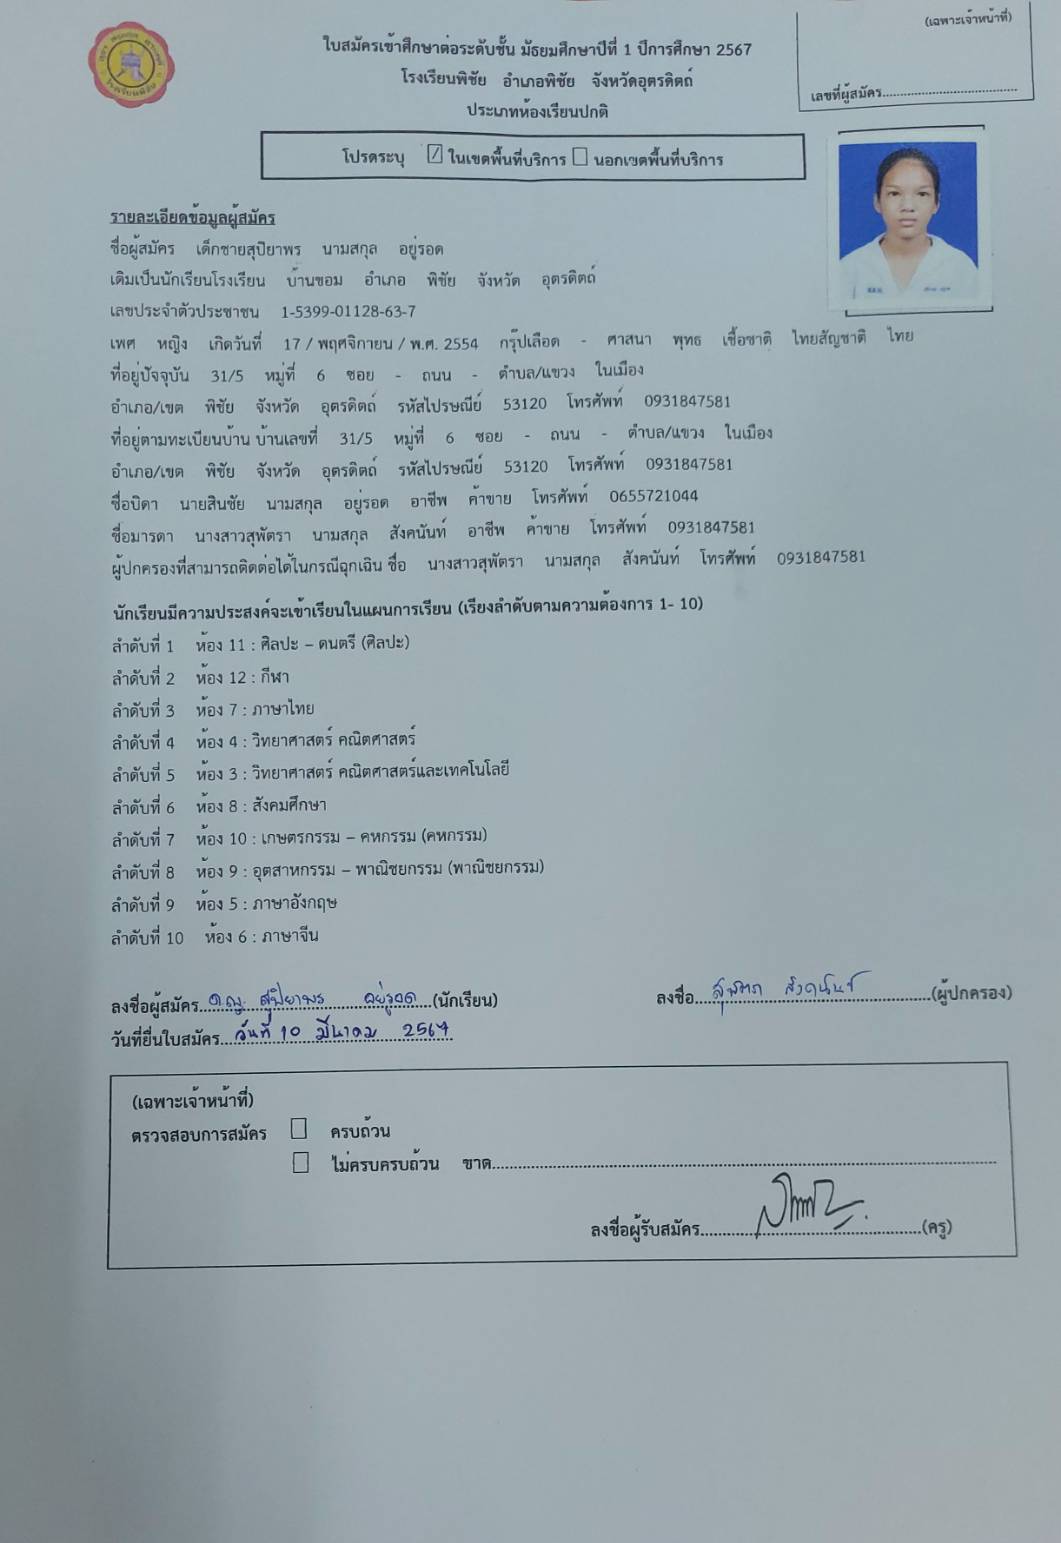 (เฉพาะเจ้าหน้าที่)
ใบสมัครเข้าศึกษาต่อระดับชั้น มัธยมศึกษาปีที่ 1 ปีการศึกษา 2567
โรงเรียนพิชัย อำเภอพิชัย จังหวัดอุตรดิตถ์
เลขที่ผู้สมัคร
ประเภทห้องเรียนปกติ
โปรดระบุ / ในเขตพื้นที่บริการ นอกเขตพื้นที่บริการ
รายละเอียดข้อมูลผู้สมัคร
ชื่อผู้สมัคร เด็กชายสุปิยาพร นามสกุล อยู่รอด
เดิมเป็นนักเรียนโรงเรียน บ้านขอม อำเภอ พิชัย จังหวัด อุตรดิตถ์
เลขประจำตัวประชาชน 1-5399-01128-63-7
เพศ หญิง เกิดวันที่ 17 / พฤศจิกายน / พ.ศ. 2554 กรุ๊ปเลือด - ศาสนา พุทธ เชื้อชาติ ไทยสัญชาติ ไทย
ที่อยู่ปัจจุบัน 31/5 หมู่ที่ 6 ซอย - ถนน - ตำบล/แขวง ในเมือง
อำเภอ/เขต พิชัย จังหวัด อุตรดิตถ์ รหัสไปรษณีย์ 53120 โทรศัพท์ 0931847581
ที่อยู่ตามทะเบียนบ้าน บ้านเลขที่ 31/5 หมู่ที่ 6 ซอย - ถนน - ตำบล/แขวง ในเมือง
อำเภอ/เขต พิชัย จังหวัด อุตรดิตถ์ รหัสไปรษณีย์ 53120 โทรศัพท์ 0931847581
ชื่อบิดา นายสินชัย นามสกุล อยู่รอด อาชีพ ค้าขาย โทรศัพท์ 0655721044
ชื่อมารดา นางสาวสุพัตรา นามสกุล สังคนันท์ อาชีพ ค้าขาย โทรศัพท์ 0931847581
ผู้ปกครองที่สามารถติดต่อได้ในกรณีฉุกเฉิน ชื่อ นางสาวสุพัตรา นามสกุล สังคนันท์ โทรศัพท์ 0931847581
นักเรียนมีความประสงค์จะเข้าเรียนในแผนการเรียน (เรียงลำดับตามความต้องการ 1- 10)
ลำดับที่ 1 ห้อง 11 : ศิลปะ – ดนตรี (ศิลปะ)
ลำดับที่ 2 ห้อง 12 : กีฬา
ลำดับที่ 3 ห้อง 7 : ภาษาไทย
ลำดับที่ 4 ห้อง 4 : วิทยาศาสตร์ คณิตศาสตร์
ลำดับที่ 5 ห้อง 3 : วิทยาศาสตร์ คณิตศาสตร์และเทคโนโลยี
ลำดับที่ 6 ห้อง 8 : สังคมศึกษา
ลำดับที่ 7 ห้อง 10 : เกษตรกรรม – คหกรรม (คหกรรม)
ลำดับที่ 8 ห้อง 9 : อุตสาหกรรม – พาณิชยกรรม (พาณิชยกรรม)
ลำดับที่ 9 ห้อง 5 : ภาษาอังกฤษ
ลำดับที่ 10 ห้อง 6 : ภาษาจีน
ลงชื่อผู้สมัคร ด.ญ. สุปิยาพร อยู่รอด (นักเรียน) ลงชื่อ สุพัตรา สังคนันท์ (ผู้ปกครอง)
วันที่ยื่นใบสมัคร วันที่ 10 มีนาคม 2567
(เฉพาะเจ้าหน้าที่)
ตรวจสอบการสมัคร ครบถ้วน
ไม่ครบครบถ้วน ขาด
ลงชื่อผู้รับสมัคร (ครู)